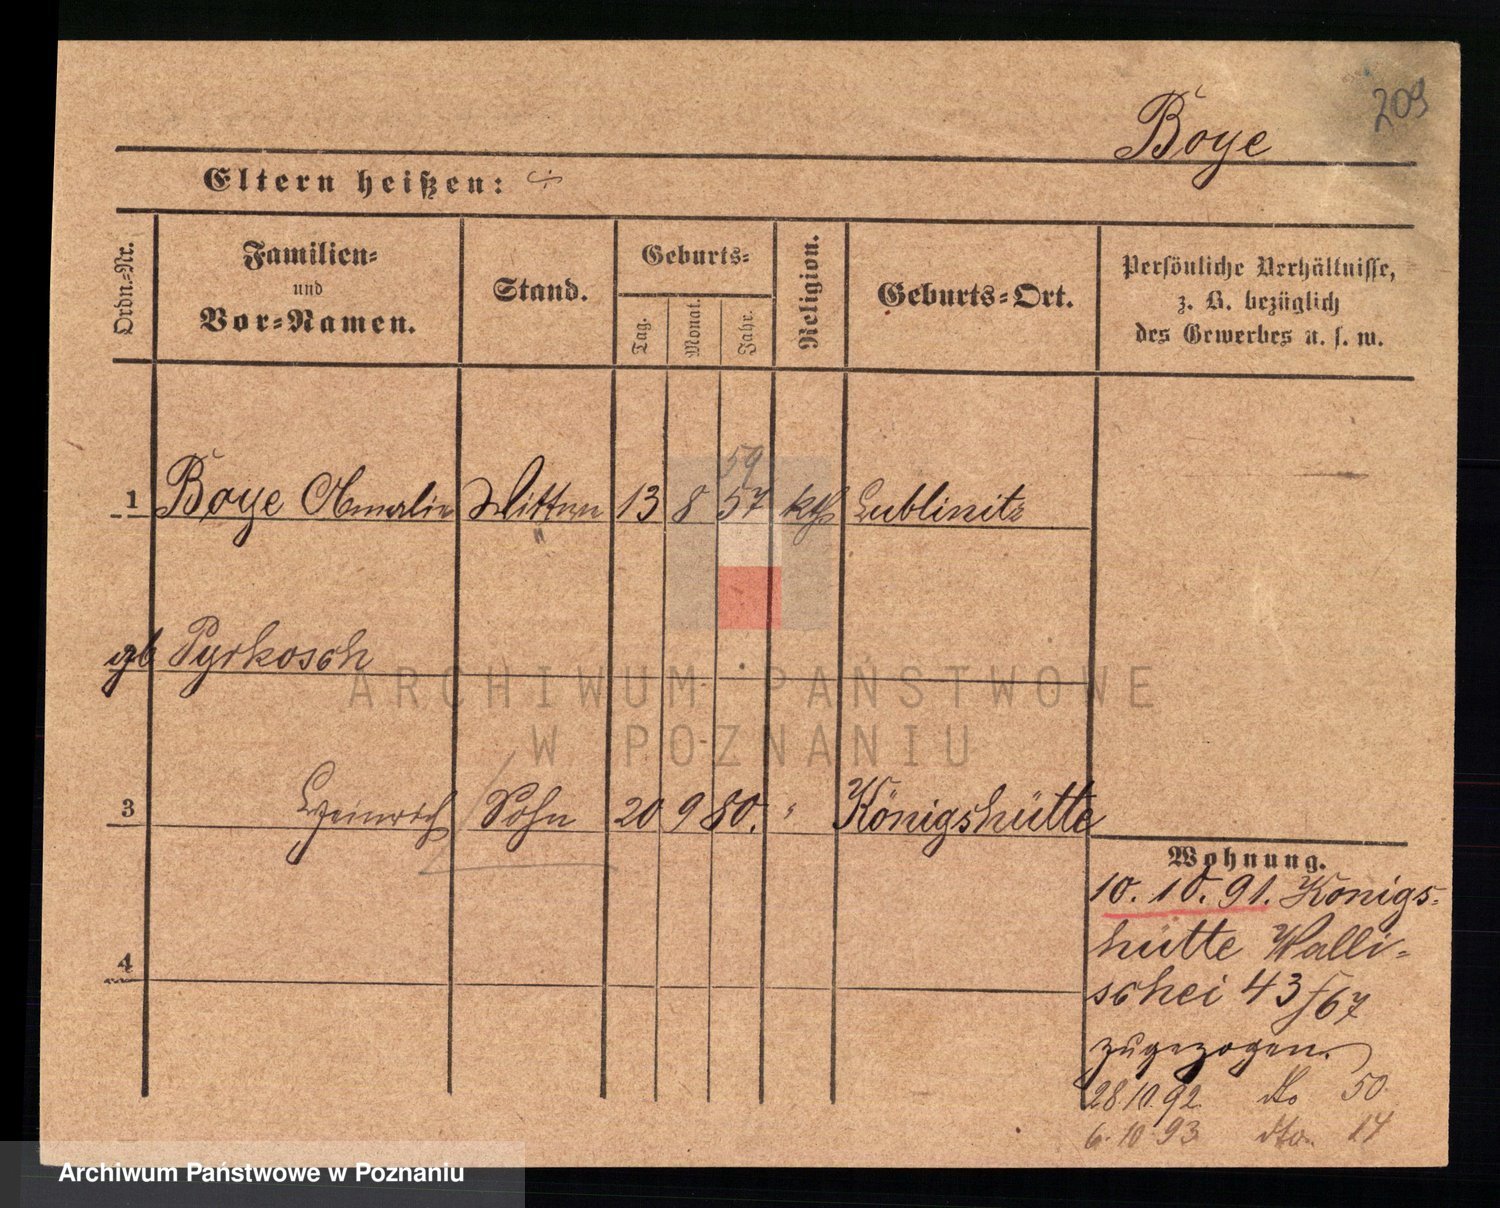 209
Boye
Eltern heißen: ./.
Ordn.-Nr.
Familien-
und
Vor-Namen.
Stand.
Geburts-
Tag.
Monat.
Jahr.
Religion.
Geburts-Ort.
Persönliche Verhältnisse,
z. B. bezüglich
des Gewerbes u. s. w.
59
1 Boye Amalie Wittwe 13 8 57 kth Lublinitz
gb Pyrkosch
ARCHIWUM PAŃSTWOWE
W POZNANIU
3 Heinrich Sohn 20 9 80. " Königshütte
Wohnung.
10. 10. 91. Königs-
hütte Walli-
schei 43/67
zugezogen.
4
28.10.92. do 50
6.10.93 dto. 17
Archiwum Państwowe w Poznaniu